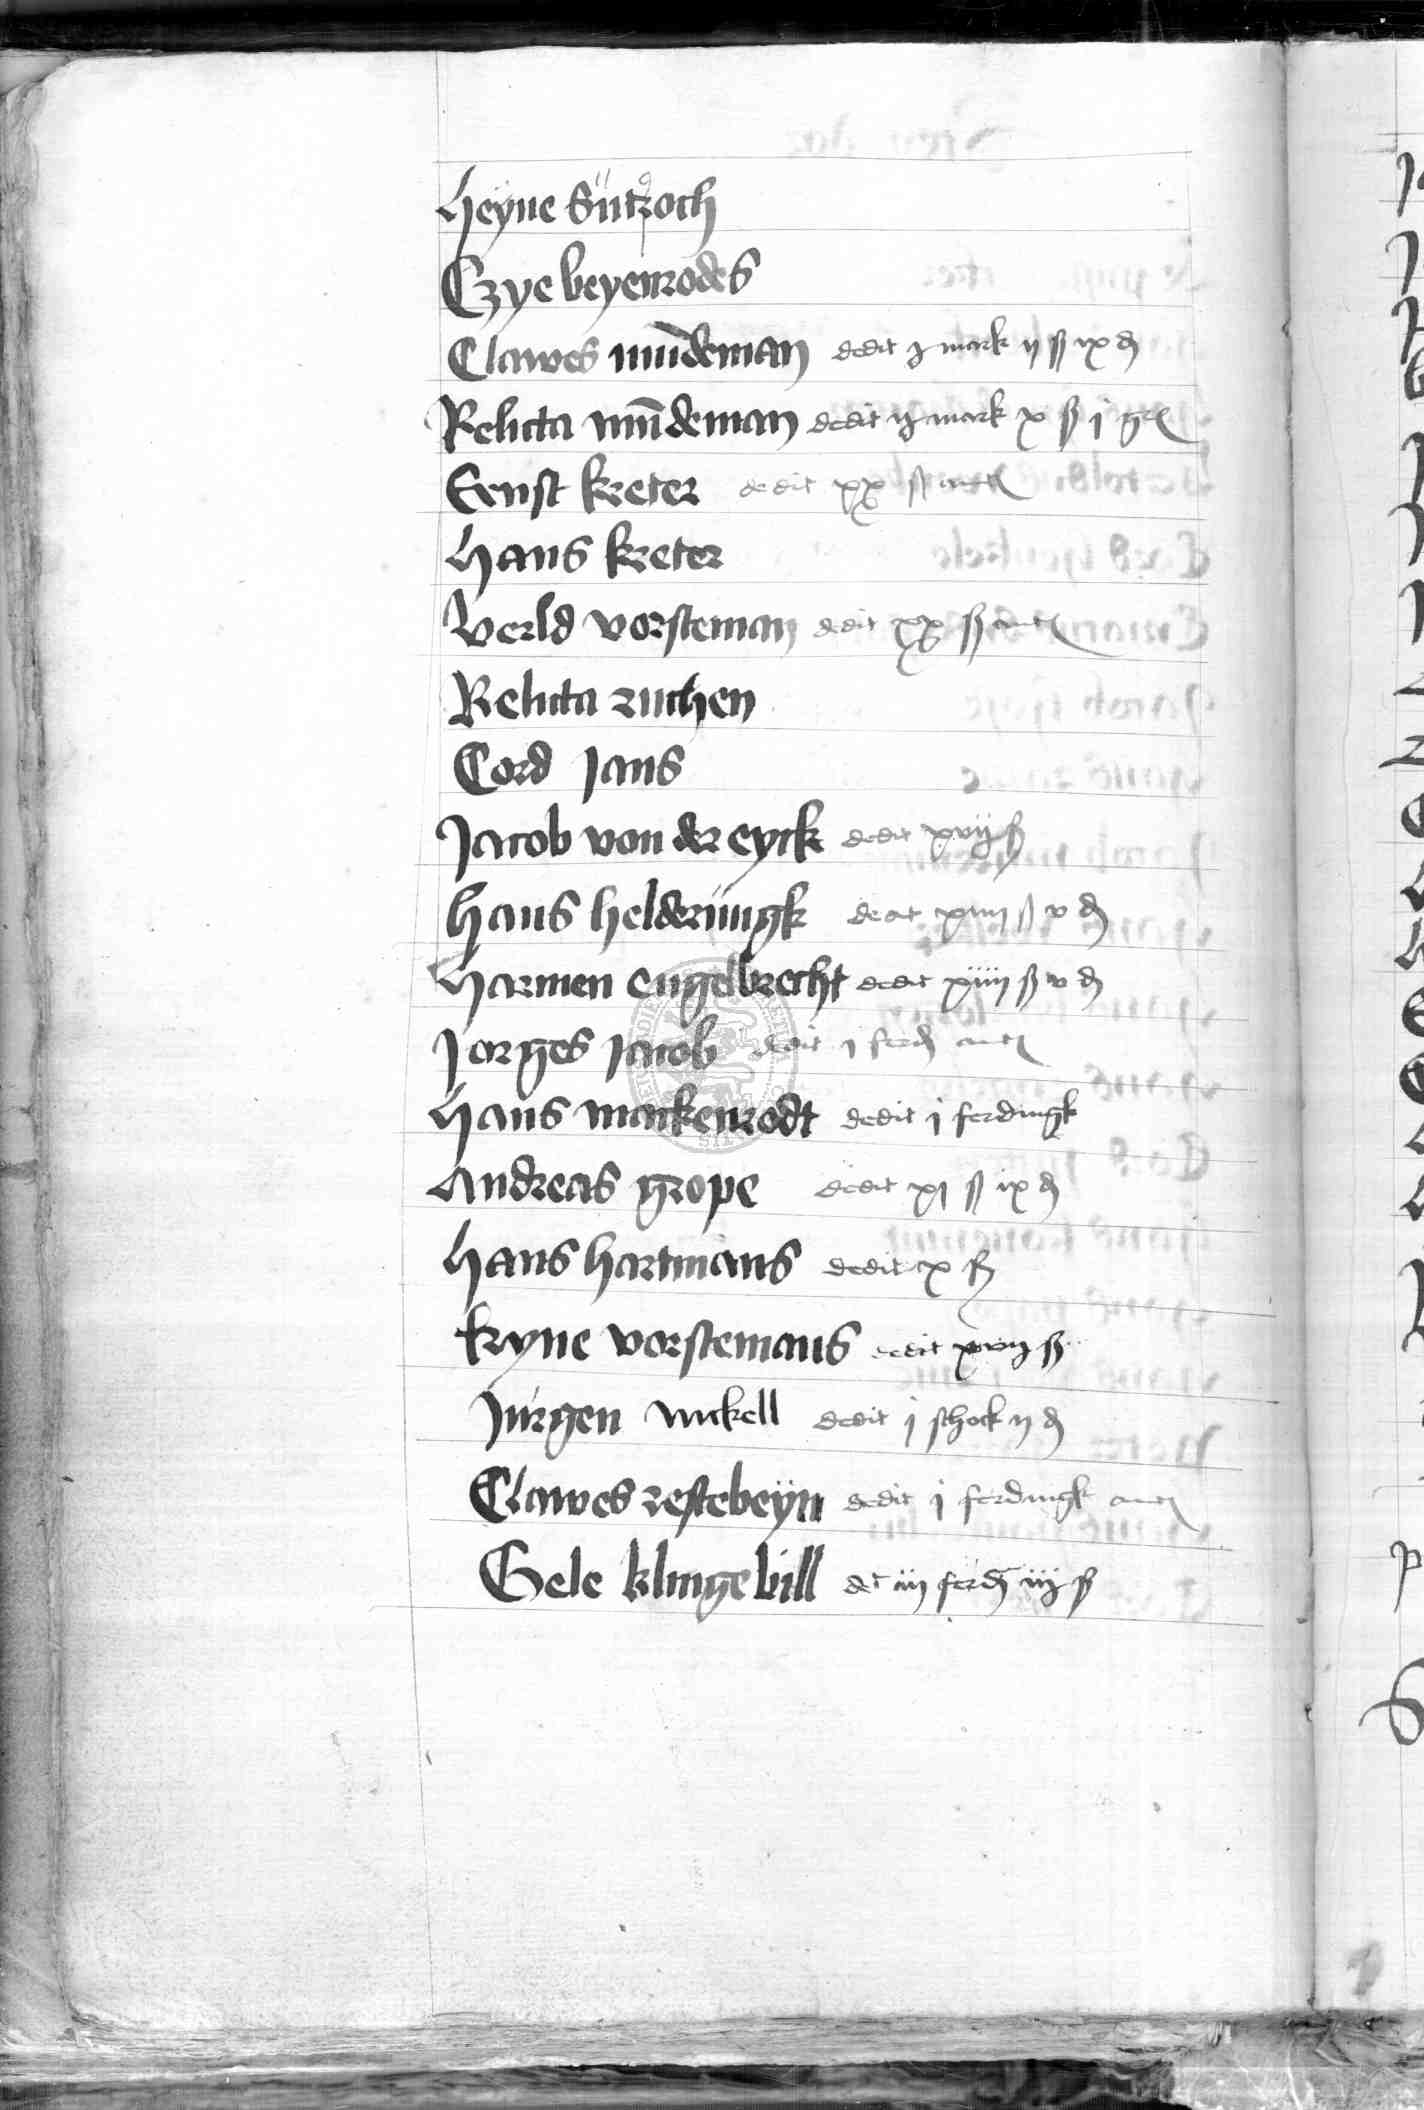 Heyne Sutzoch
Czye beyenrodes
Clawes mu̅deman dedit j mark ij ß ix ₰
Relicta mu̅deman dedit ij mark x ß j gr
Ernst kreter dedit xx ß
Hans kreter
Verld vorsteman dedit xx ß
Relicta zuchen
Cord Jans
Jacob von der eyck dedit xvij ß
Hans helderungk dedit xiiij ß v ₰
Harmen engelbrecht dedit xiiij ß v ₰
Jorges Jacob dedit j ferd
Hans mackenrodt dedit j ferdingk
Andreas grope dedit xj ß ix ₰
Hans hartmans dedit x ß
kryne vorstemans dedit xviij ß
Jurgen nickell dedit j schock ij ₰
Clawes restebeyn dedit j ferdingk
Gele klingebill det iij ferd iij ß